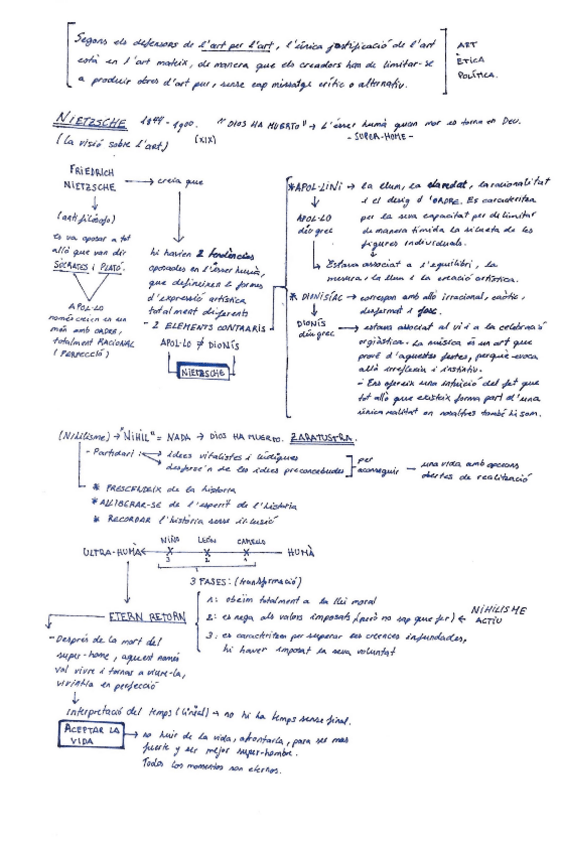 Segons els defensors de l'art per l'art, l'única justificació de l'art
està en l'art mateix, de manera que els creadors han de limitar-se
a produir obres d'art pur, sense cap missatge crític o alternatiu.
ART
ÈTICA
POLÍTICA.
NIETZSCHE 1844-1900. "DIOS HA MUERTO" → L'ésser humà quan mor es torna en Déu.
(XIX)
-SUPER-HOME-
(La visió sobre l'art)
FRIEDRICH
NIETZSCHE → creia que
(antifilòsof)
es va oposar a tot
allò que van dir
SÒCRATES i PLATÓ.
APOL·LO
només creien en un
món amb ORDRE,
totalment RACIONAL
(PERFECCIÓ)
hi havien 2 tendències
oposades en l'ésser humà,
que defineixen 2 formes
d'expressió artística
totalment diferents
- 2 ELEMENTS CONTRARIS
APOL·LO ≠ DIONÍS
NIETZSCHE
* APOL·LINI → la llum, la claredat, la racionalitat
i el desig d'ORDRE. Es caracteritza
per la seva capacitat per delimitar
de manera tímida la silueta de les
figures individuals.
APOL·LO
déu grec
Estava associat a l'equilibri, la
mesura, la llum i la creació artística.
* DIONISÍAC → correspon amb allò irracional, caòtic,
desformat i fosc.
DIONÍS
déu grec
estava associat al vi i a la celebració
orgiàstica. La música és un art que
prové d'aquestes festes, perquè evoca
allò irreflexiu i instintiu.
- Ens ofereix una intuïció del fet que
tot allò que existeix forma part d'una
única realitat on nosaltres també hi som.
(Nihilisme) → "NIHIL" = NADA → DIOS HA MUERTO. ZARATUSTRA.
- Partidari → idees vitalistes i lúdiques
desprèn de les idees preconcebudes
per
aconseguir → una vida amb opcions
obertes de realització
* PRESCINDIR de la història
* ALLIBERAR-SE de l'esperit de l'història
* RECORDAR l'història sense il·lusió
NIÑO LEÓN CAMELLO
ULTRA-HUMÀ HUMÀ
3 2 1
3 FASES: (transformació)
1: obeïm totalment a la llei moral
2: es nega als valors imposats (però no sap que fer) ← NIHILISME
ACTIU
3: es caracteritza per superar les creences infundades,
hi haver imposat la seva voluntat
ETERN RETORN
- Després de la mort del
super-home, aquest només
vol viure i tornar a viure-la,
viuria en perfecció
interpretació del temps (lineal) → no hi ha temps sense final.
ACEPTAR LA
VIDA → no huir de la vida, afrontarla, para ser más
fuerte y ser mejor super-hombre.
Todos los momentos son eternos.